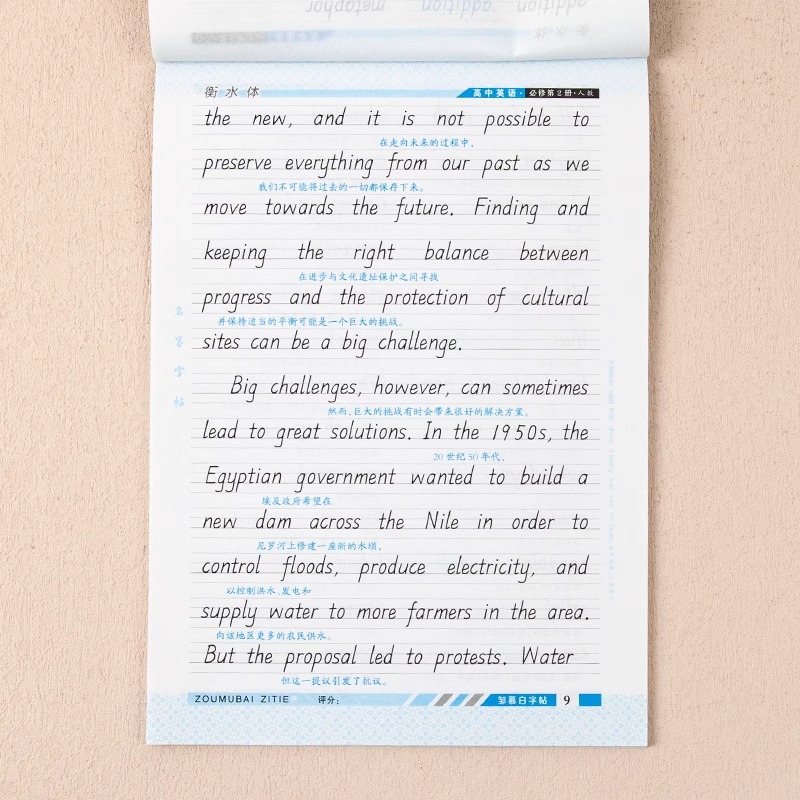 addition addition metaphor
衡水体
高中英语·必修第2册·人教
the new, and it is not possible to
在走向未来的过程中，
preserve everything from our past as we
我们不可能将过去的一切都保存下来。
move towards the future. Finding and
keeping the right balance between
在进步与文化遗址保护之间寻找
progress and the protection of cultural
并保持适当的平衡可能是一个巨大的挑战。
sites can be a big challenge.
Big challenges, however, can sometimes
然而，巨大的挑战有时会带来很好的解决方案。
lead to great solutions. In the 1950s, the
20世纪50年代，
Egyptian government wanted to build a
埃及政府希望在
new dam across the Nile in order to
尼罗河上修建一座新的水坝，
control floods, produce electricity, and
以控制洪水、发电和
supply water to more farmers in the area.
向该地区更多的农民供水。
But the proposal led to protests. Water
但这一提议引发了抗议。
ZOUMUBAI ZITIE
评分：
邹慕白字帖
9